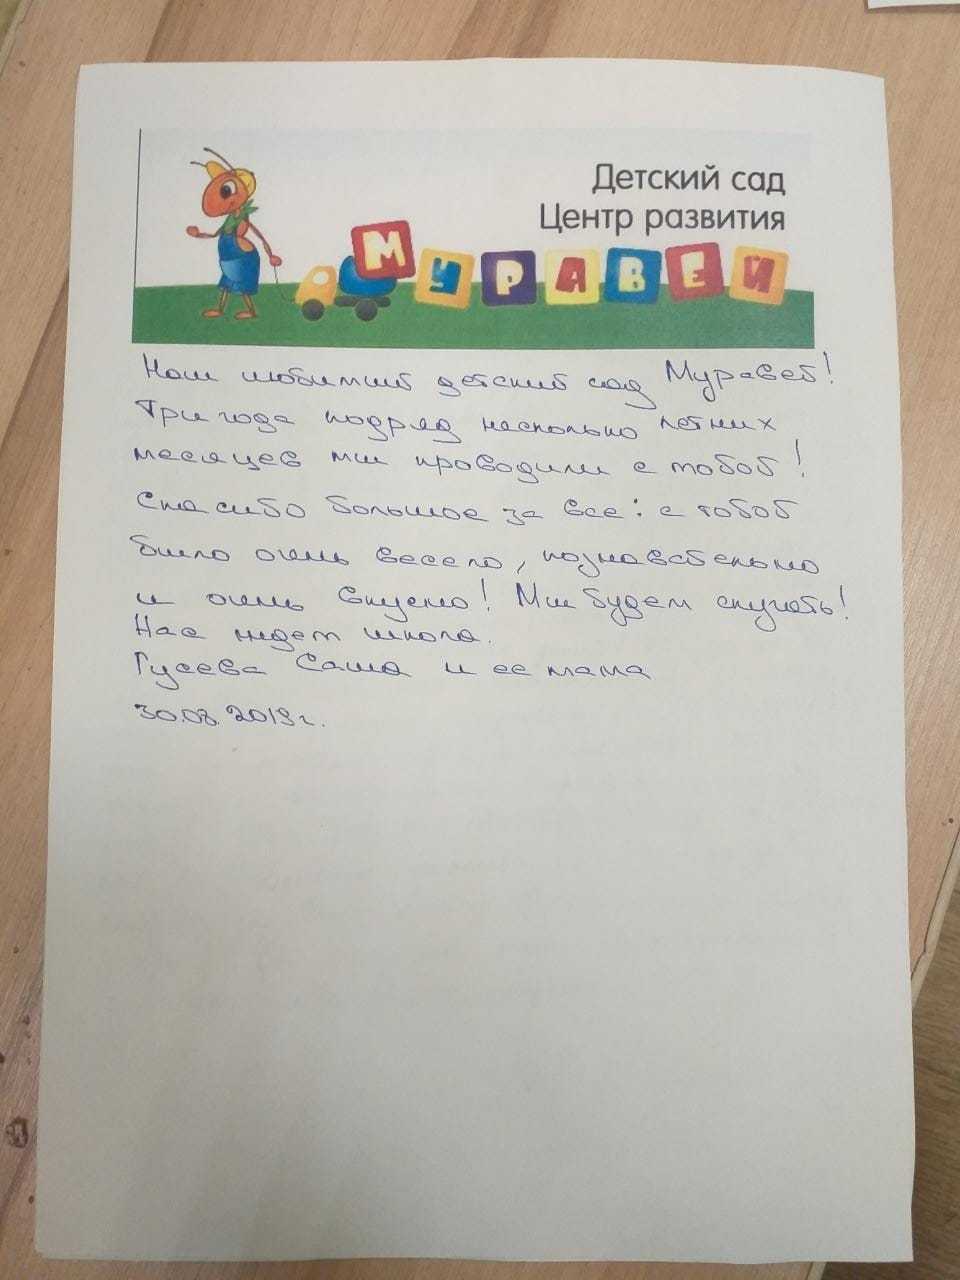 Детский сад
Центр развития
МУРАВЕЙ
Наш любимый детский сад Муравей!
Три года подряд несколько летних
месяцев мы проводили с тобой!
Спасибо большое за все: с тобой
было очень весело, познавательно
и очень вкусно! Мы будем скучать!
Нас ждет школа.
Гусева Саша и ее мама
30.08.2019г.